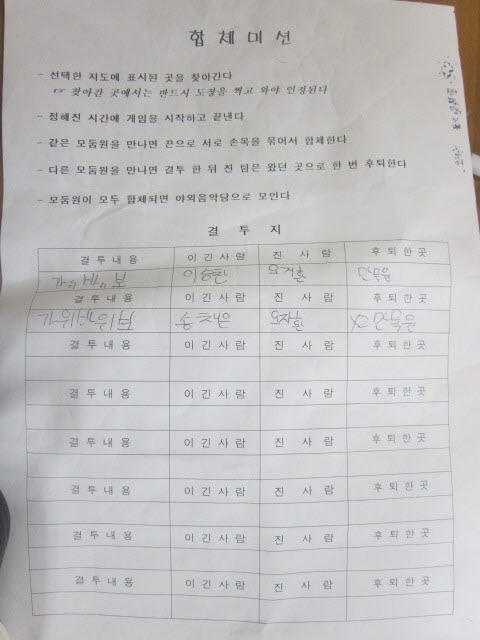 합체미션
- 선택한 지도에 표시된 곳을 찾아간다
☞ 찾아간 곳에서는 반드시 도장을 찍고 와야 인정된다
- 정해진 시간에 게임을 시작하고 끝낸다
- 같은 모둠원을 만나면 끈으로 서로 손목을 묶어서 합체한다
- 다른 모둠원을 만나면 결투 한 뒤 진 팀은 왔던 곳으로 한 번 후퇴한다
- 모둠원이 모두 합체되면 야외음악당으로 모인다
결 투 지
결투내용 이긴사람 진 사람 후퇴한곳
결투내용 이긴사람 진 사람 후퇴한곳
가위바위보
결투내용 이긴사람 진 사람 후퇴한곳
결투내용 이긴사람 진 사람 후퇴한곳
결투내용 이긴사람 진 사람 후퇴한곳
결투내용 이긴사람 진 사람 후퇴한곳
결투내용 이긴사람 진 사람 후퇴한곳
결투내용 이긴사람 진 사람 후퇴한곳